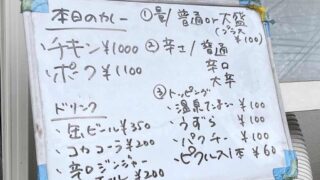 本日のカレー
・チキン ¥1000
・ポーク ¥1100
ドリンク
・缶ビール ¥350
・コカコーラ ¥200
・辛口ジンジャー
¥200
① 量/普通 or 大盛
(プラス ¥100)
② 辛さ/普通
辛口
大辛
③ トッピング
・温泉たまご ¥100
・うずら ¥100
・パクチー ¥100
・ピクルス1本 ¥60